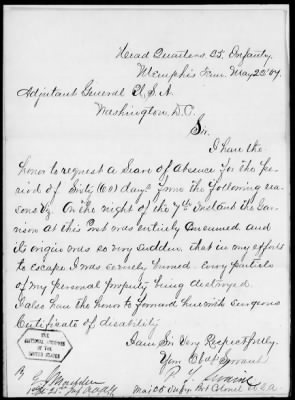 Head Quarters, 25. Infantry.
Memphis Tenn. May 23d 67.
Adjutant General U.S.A.
Washington D.C.
Sir.
I have the
honor to request a Leave of Absence for the pe-
riod of Sixty (60) days from the following rea-
sons viz. On the night of the 7th instant the Gar-
rison at this Post was entirely consumed and
its origin was so very sudden, that in my efforts
to escape I was severely burned. Every particle
of my personal property being destroyed.
I also have the honor to forward herewith surgeons
Certificate of disability
I am Sir Very Respectfully.
Your Obdt Servant
Maj 25 Infy Bvt Colonel U.S.A.
1st Lt. 25th Inf
THE
NATIONAL ARCHIVES
OF THE
UNITED STATES